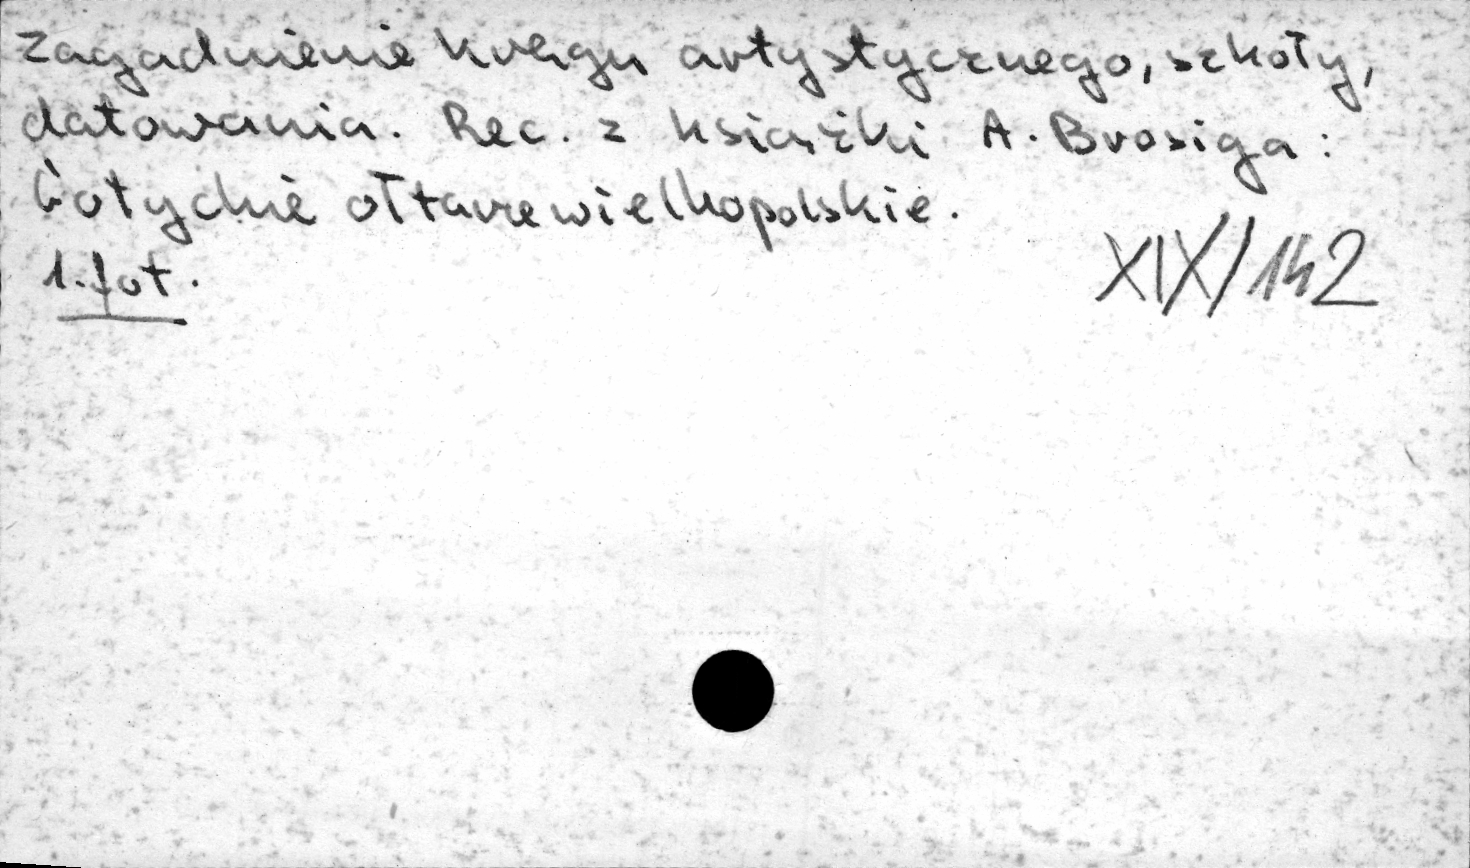 Zagadnienie kręgu artystycznego, szkoły,
datowania. Rec. z książki A. Brosiga:
Gotyckie ołtarze wielkopolskie.
1. fot.
XIX/142